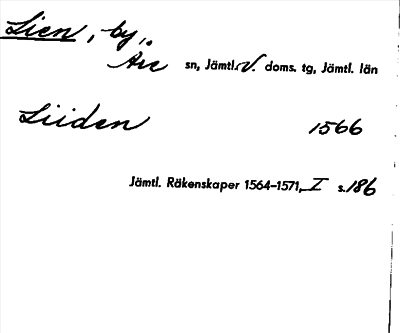 Lien, by,
Åre sn, Jämtl. V. doms. tg, Jämtl. län
Liiden 1566
Jämtl. Räkenskaper 1564–1571, I s. 186